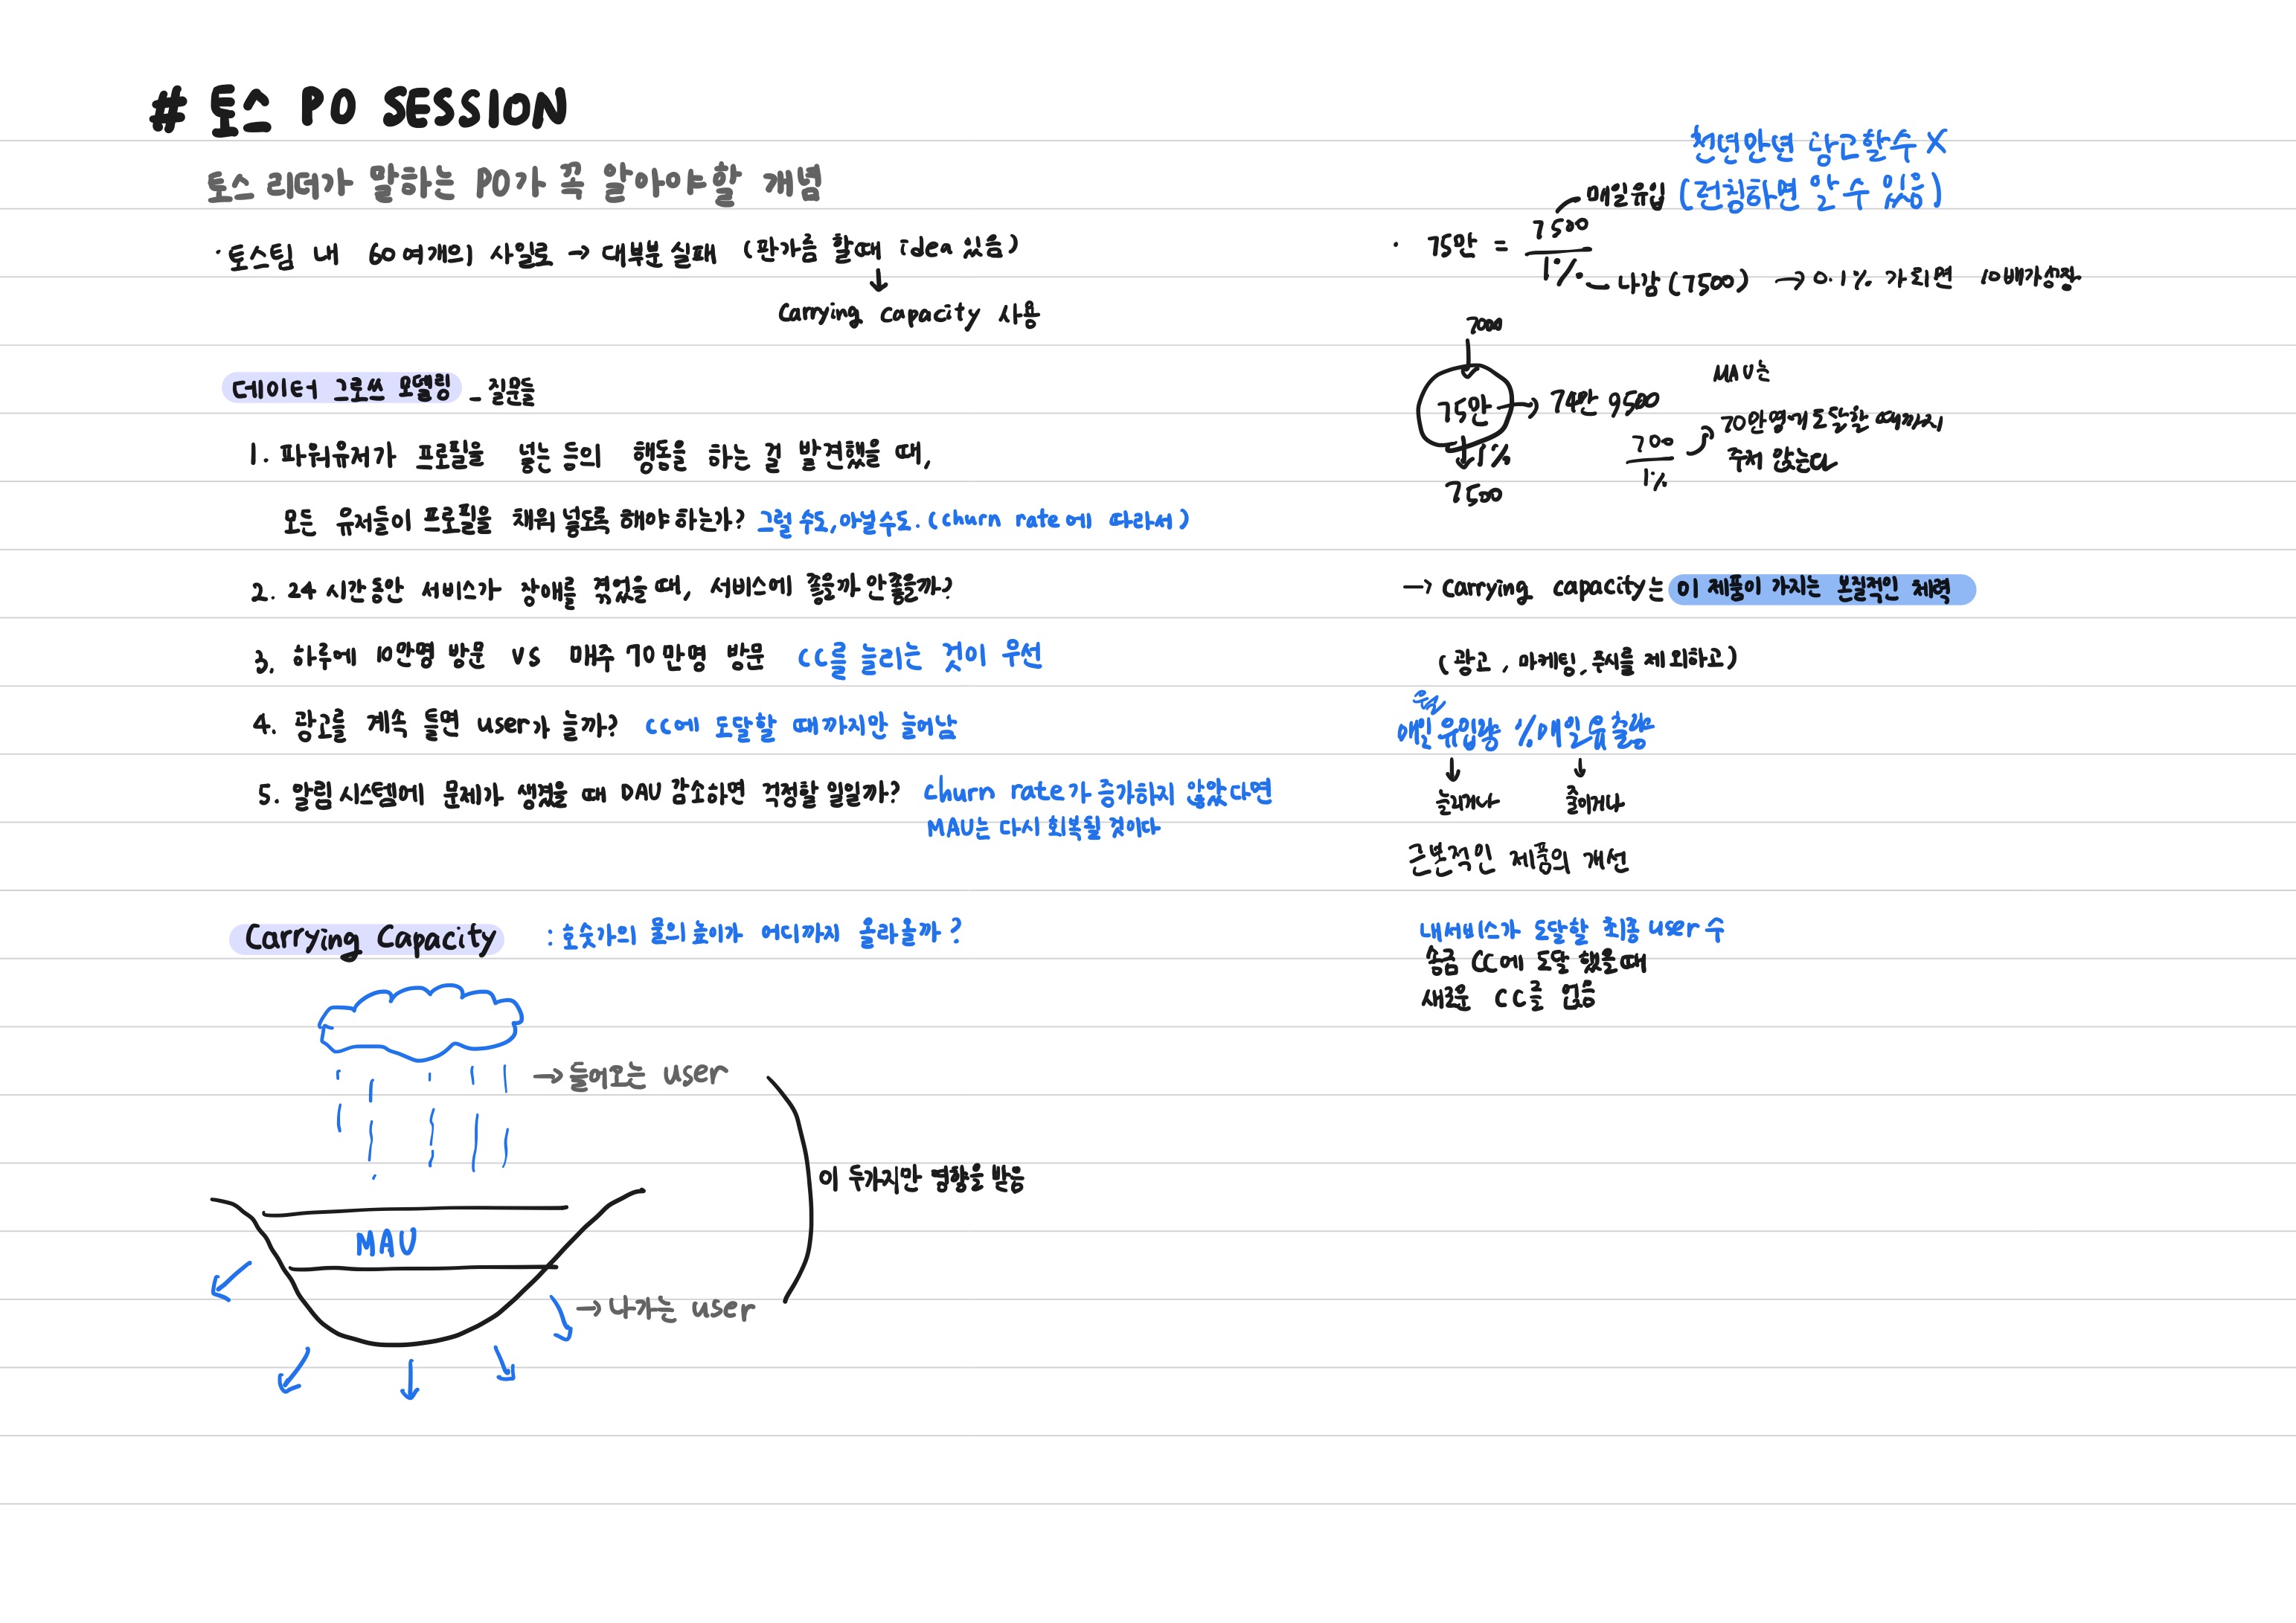 # 토스 PO SESSION
토스 리더가 말하는 PO가 꼭 알아야할 개념
· 토스팀 내 60여개의 사일로 → 대부분 실패 (판가름 할때 idea 있음)
↓
Carrying capacity 사용
데이터 그로쓰 모델링 _ 질문들
1. 파워유저가 프로필을 넣는 등의 행동을 하는 걸 발견했을 때,
모든 유저들이 프로필을 채워 넣도록 해야 하는가? 그럴 수도, 아닐수도. (churn rate에 따라서)
2. 24시간동안 서비스가 장애를 겪었을 때, 서비스에 좋을까 안좋을까?
3. 하루에 10만명 방문 VS 매주 70만명 방문 CC를 늘리는 것이 우선
4. 광고를 계속 틀면 user가 늘까? CC에 도달할 때까지만 늘어남
5. 알림 시스템에 문제가 생겼을 때 DAU 감소하면 걱정할 일일까? churn rate가 증가하지 않았다면
MAU는 다시 회복될 것이다
Carrying Capacity : 호숫가의 물의 높이가 어디까지 올라올까?
→ 들어오는 user
이 두가지만 영향을 받음
MAU
→ 나가는 user
천년만년 광고할수 X
(런칭하면 알 수 있음)
매일유입
· 75만 = 7500
1%
나감 (7500) → 0.1% 가 되면 10배가성장
7000
75만 → 74만 9500
1%
7500
MAU는
70만명에 도달할 때까지
700
1%
주저 않는다
→ Carrying capacity는 이 제품이 가지는 본질적인 체력
(광고, 마케팅, 푸시를 제외하고)
매일 유입량 % 매일 유출량
↓ ↓
늘리거나 줄이거나
근본적인 제품의 개선
내서비스가 도달할 최종 user 수
송금 CC에 도달 했을때
새로운 CC를 얹음